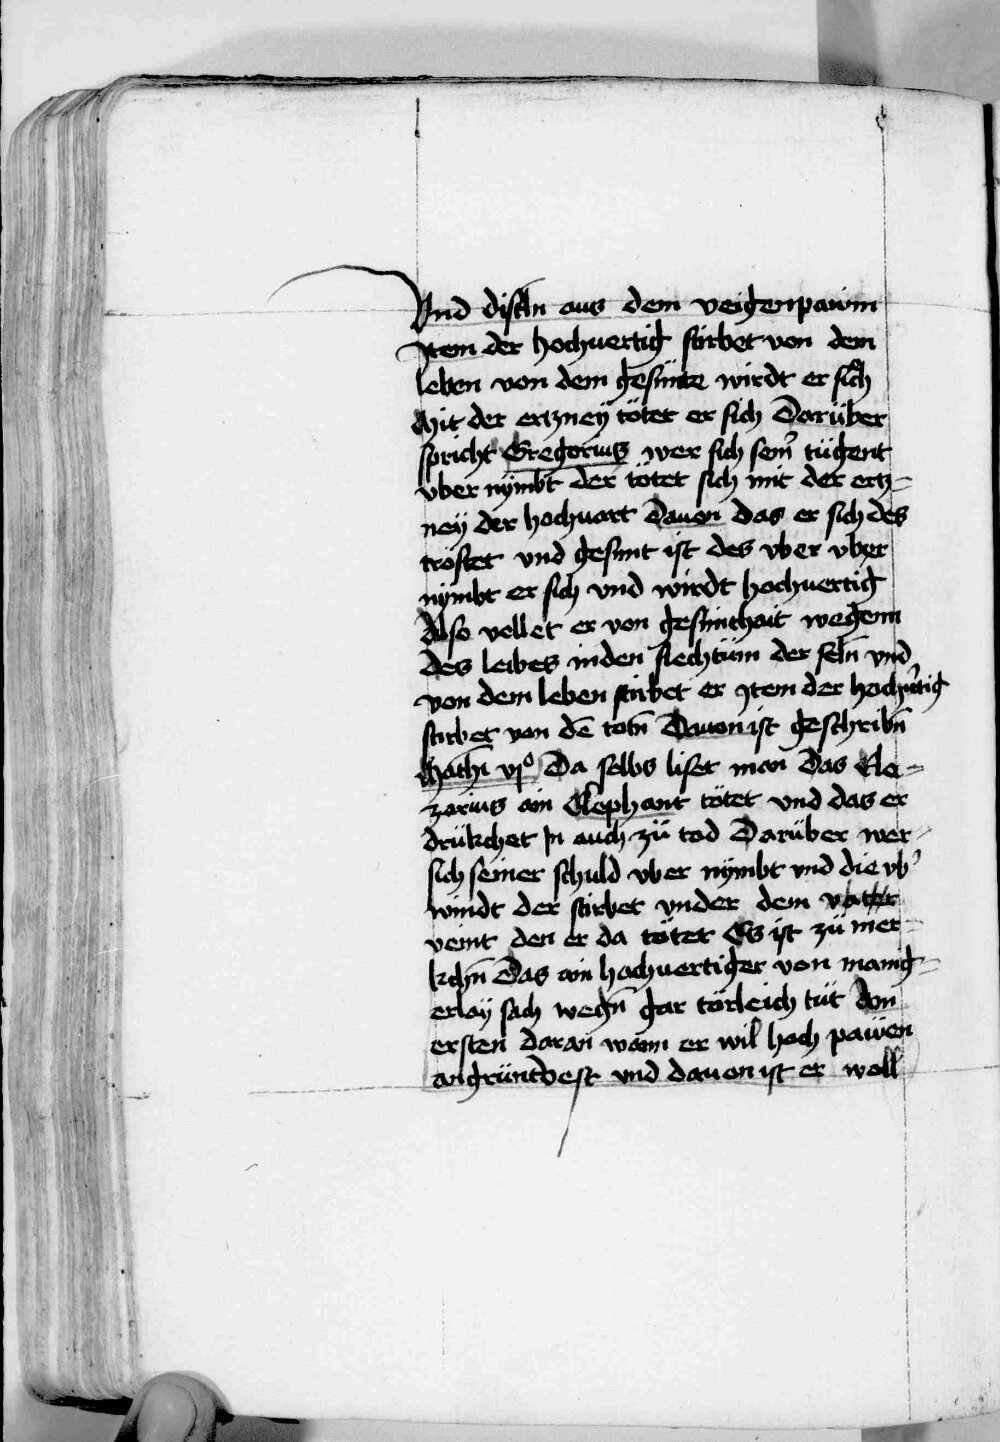 Vnd distln aus dem veigenpawm
Jtem der hochuertig stirbet von dem
leben von dem gesünte wirdt er sich
Mit der ertzneÿ tötet er sich Darüber
spricht Gregorius wer sich seinˀ tügent
vber nÿmbt der tötet sich mit der ertz=
neÿ der hochuart Dauon das er sich des
tröstet vnd gesunt ist des vber vber
nÿmbt er sich vnd wirdt hochuertig
Also vellet er von gesünthait wegenn
des leibes in den siechtüm der seln̄ vnd
von dem leben stirbet er Jtem der hochuˀtig
stirbet von dē totn̄ Dauon ist geschribn̄
Mathi vjº Da selbs liset man Das Elea=
zarius ain Elephant tötet vnd das er
drükchet Jn auch zü tod Darüber wer
sich seiner schuld vber nÿmbt vnd die vbˀ
windt der stirbet vnder dem vater
veint den er da tötet Es ist zü mer=
kchn̄ Das ain hochuertiger von manig=
erlaÿ sach wegn̄ gar törleich tüt Am
ersten daran wann er wil hoch pawen
an grüntvest vnd dauon ist er woll